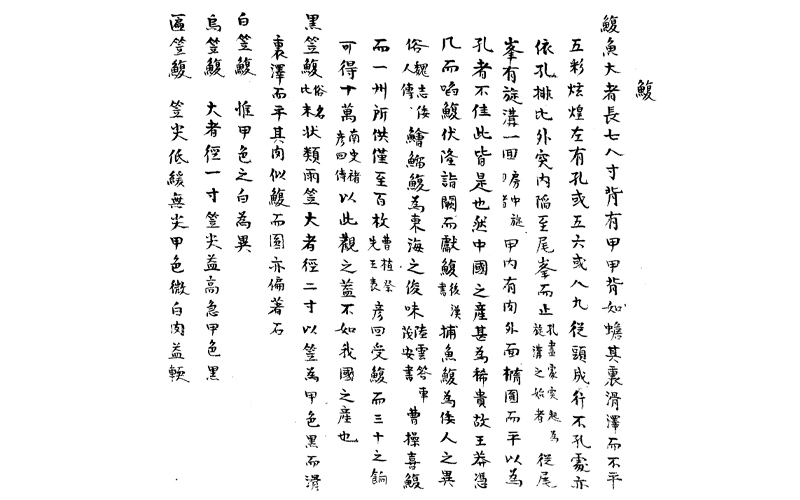 鰒
鰒魚大者長七八寸背有甲甲背如蟾其裏滑澤而不平
五彩炫煌左有孔或五六或八九從頭成行不孔處亦
依孔排比外突內陷至尾峯而止孔盡處突起為旋溝之始者從尾
峯有旋溝一回房中旋甲內有肉外面橢圓而平以為
孔者不佳此皆是也然中國之產甚為稀貴故王莽憑
几而啗鰒伏隆詣闕而獻鰒後漢書捕魚鰒為倭人之異
俗魏志倭人傳鱠鰒為東海之俊味陸雲答車茂安書曹操喜鰒
而一州所供僅至百枚曹植祭先王表彥回受鰒而三十之餉
可得十萬南史褚彥回傳以此觀之蓋不如我國之產也
黑笠鰒俗名比末狀類雨笠大者徑二寸以笠為甲色黑而滑
裏澤而平其肉似鰒而圓亦偏著石
白笠鰒 惟甲色之白為異
烏笠鰒 大者徑一寸笠尖益高急甲色黑
匾笠鰒 笠尖低緩無尖甲色微白肉益軟